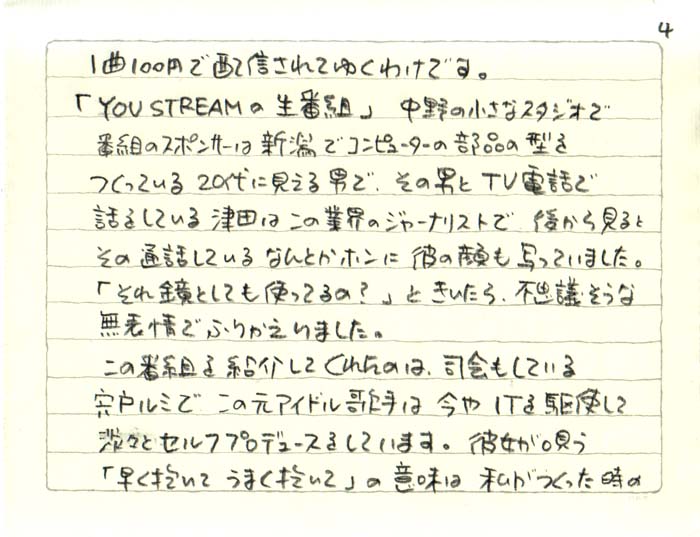 4
1曲100円で配信されてゆくわけです。
「YOU STREAMの生番組」 中野の小さなスタジオで
番組のスポンサーは新潟でコンピューターの部品の型を
つくっている 20代に見える男で、その男と TV電話で
話をしている 津田は この業界のジャーナリストで、後から見ると
その通話しているなんとかホンに 彼の顔も写っていました。
「それ鏡としても使ってるの?」と きいたら、不思議そうな
無表情で ふりかえりました。
この番組を紹介してくれたのは、司会もしている
宍戸ルミで この元アイドル歌手は 今や ITを駆使して
淡々とセルフプロデュースをしています。彼女が唄う
「早く抱いて うまく抱いて」の意味は 私がつくった時の